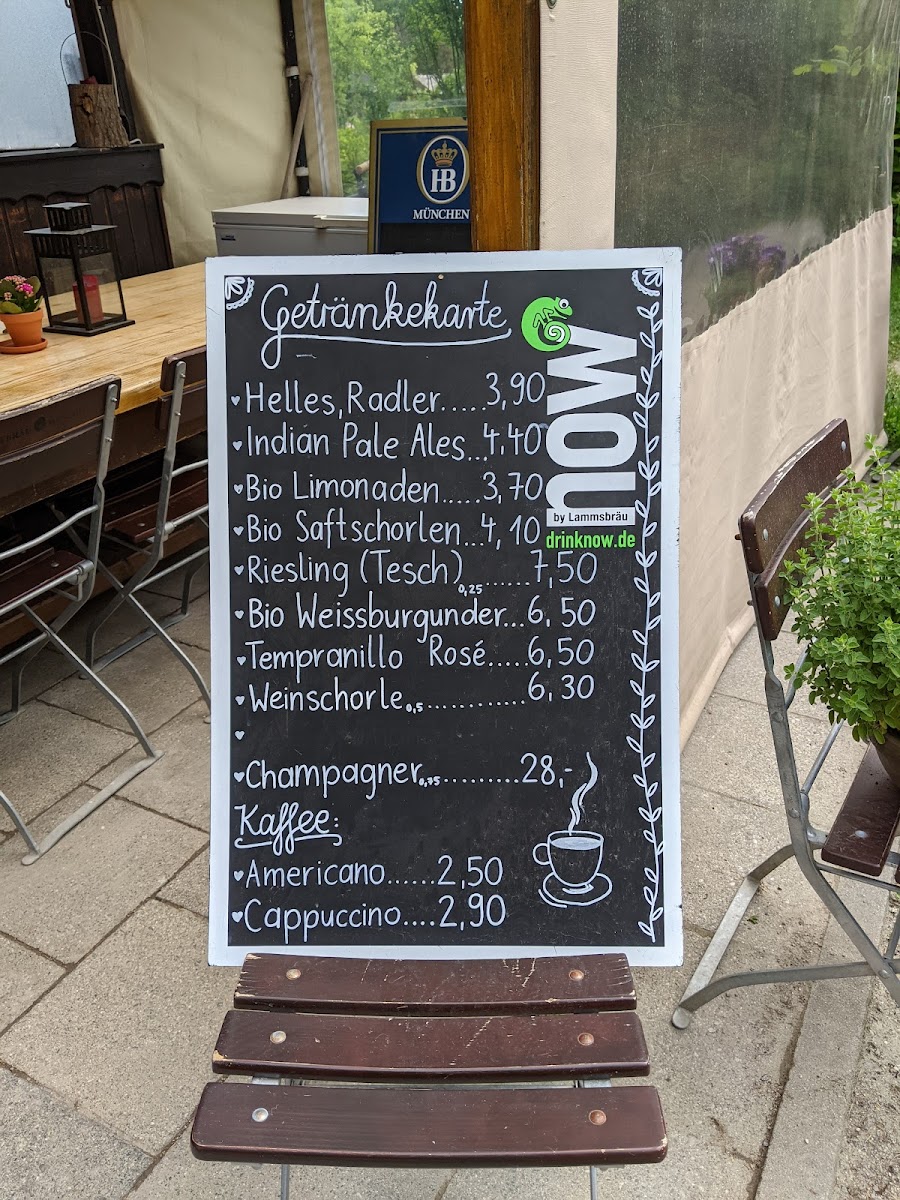 HB
MÜNCHEN
Getränkekarte
now
by Lammsbräu
drinknow.de
Helles, Radler.....3,90
Indian Pale Ales...4,40
Bio Limonaden.....3,70
Bio Saftschorlen...4,10
Riesling (Tesch) 0,25......7,50
Bio Weissburgunder...6,50
Tempranillo Rosé.....6,50
Weinschorle 0,5............6,30
Champagner 0,75..........28,-
Kaffee:
Americano......2,50
Cappuccino....2,90